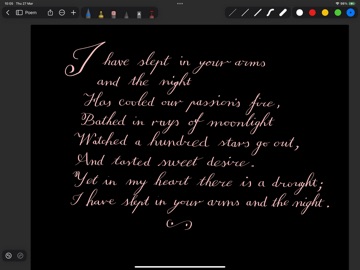 15:05 Thu 21 Mar
96%
Poem
I have slept in your arms
and the night
Has cooled our passion's fire,
Bathed in rays of moonlight
Watched a hundred stars go out,
And tasted sweet desire.
Yet in my heart there is a drought;
I have slept in your arms and the night.